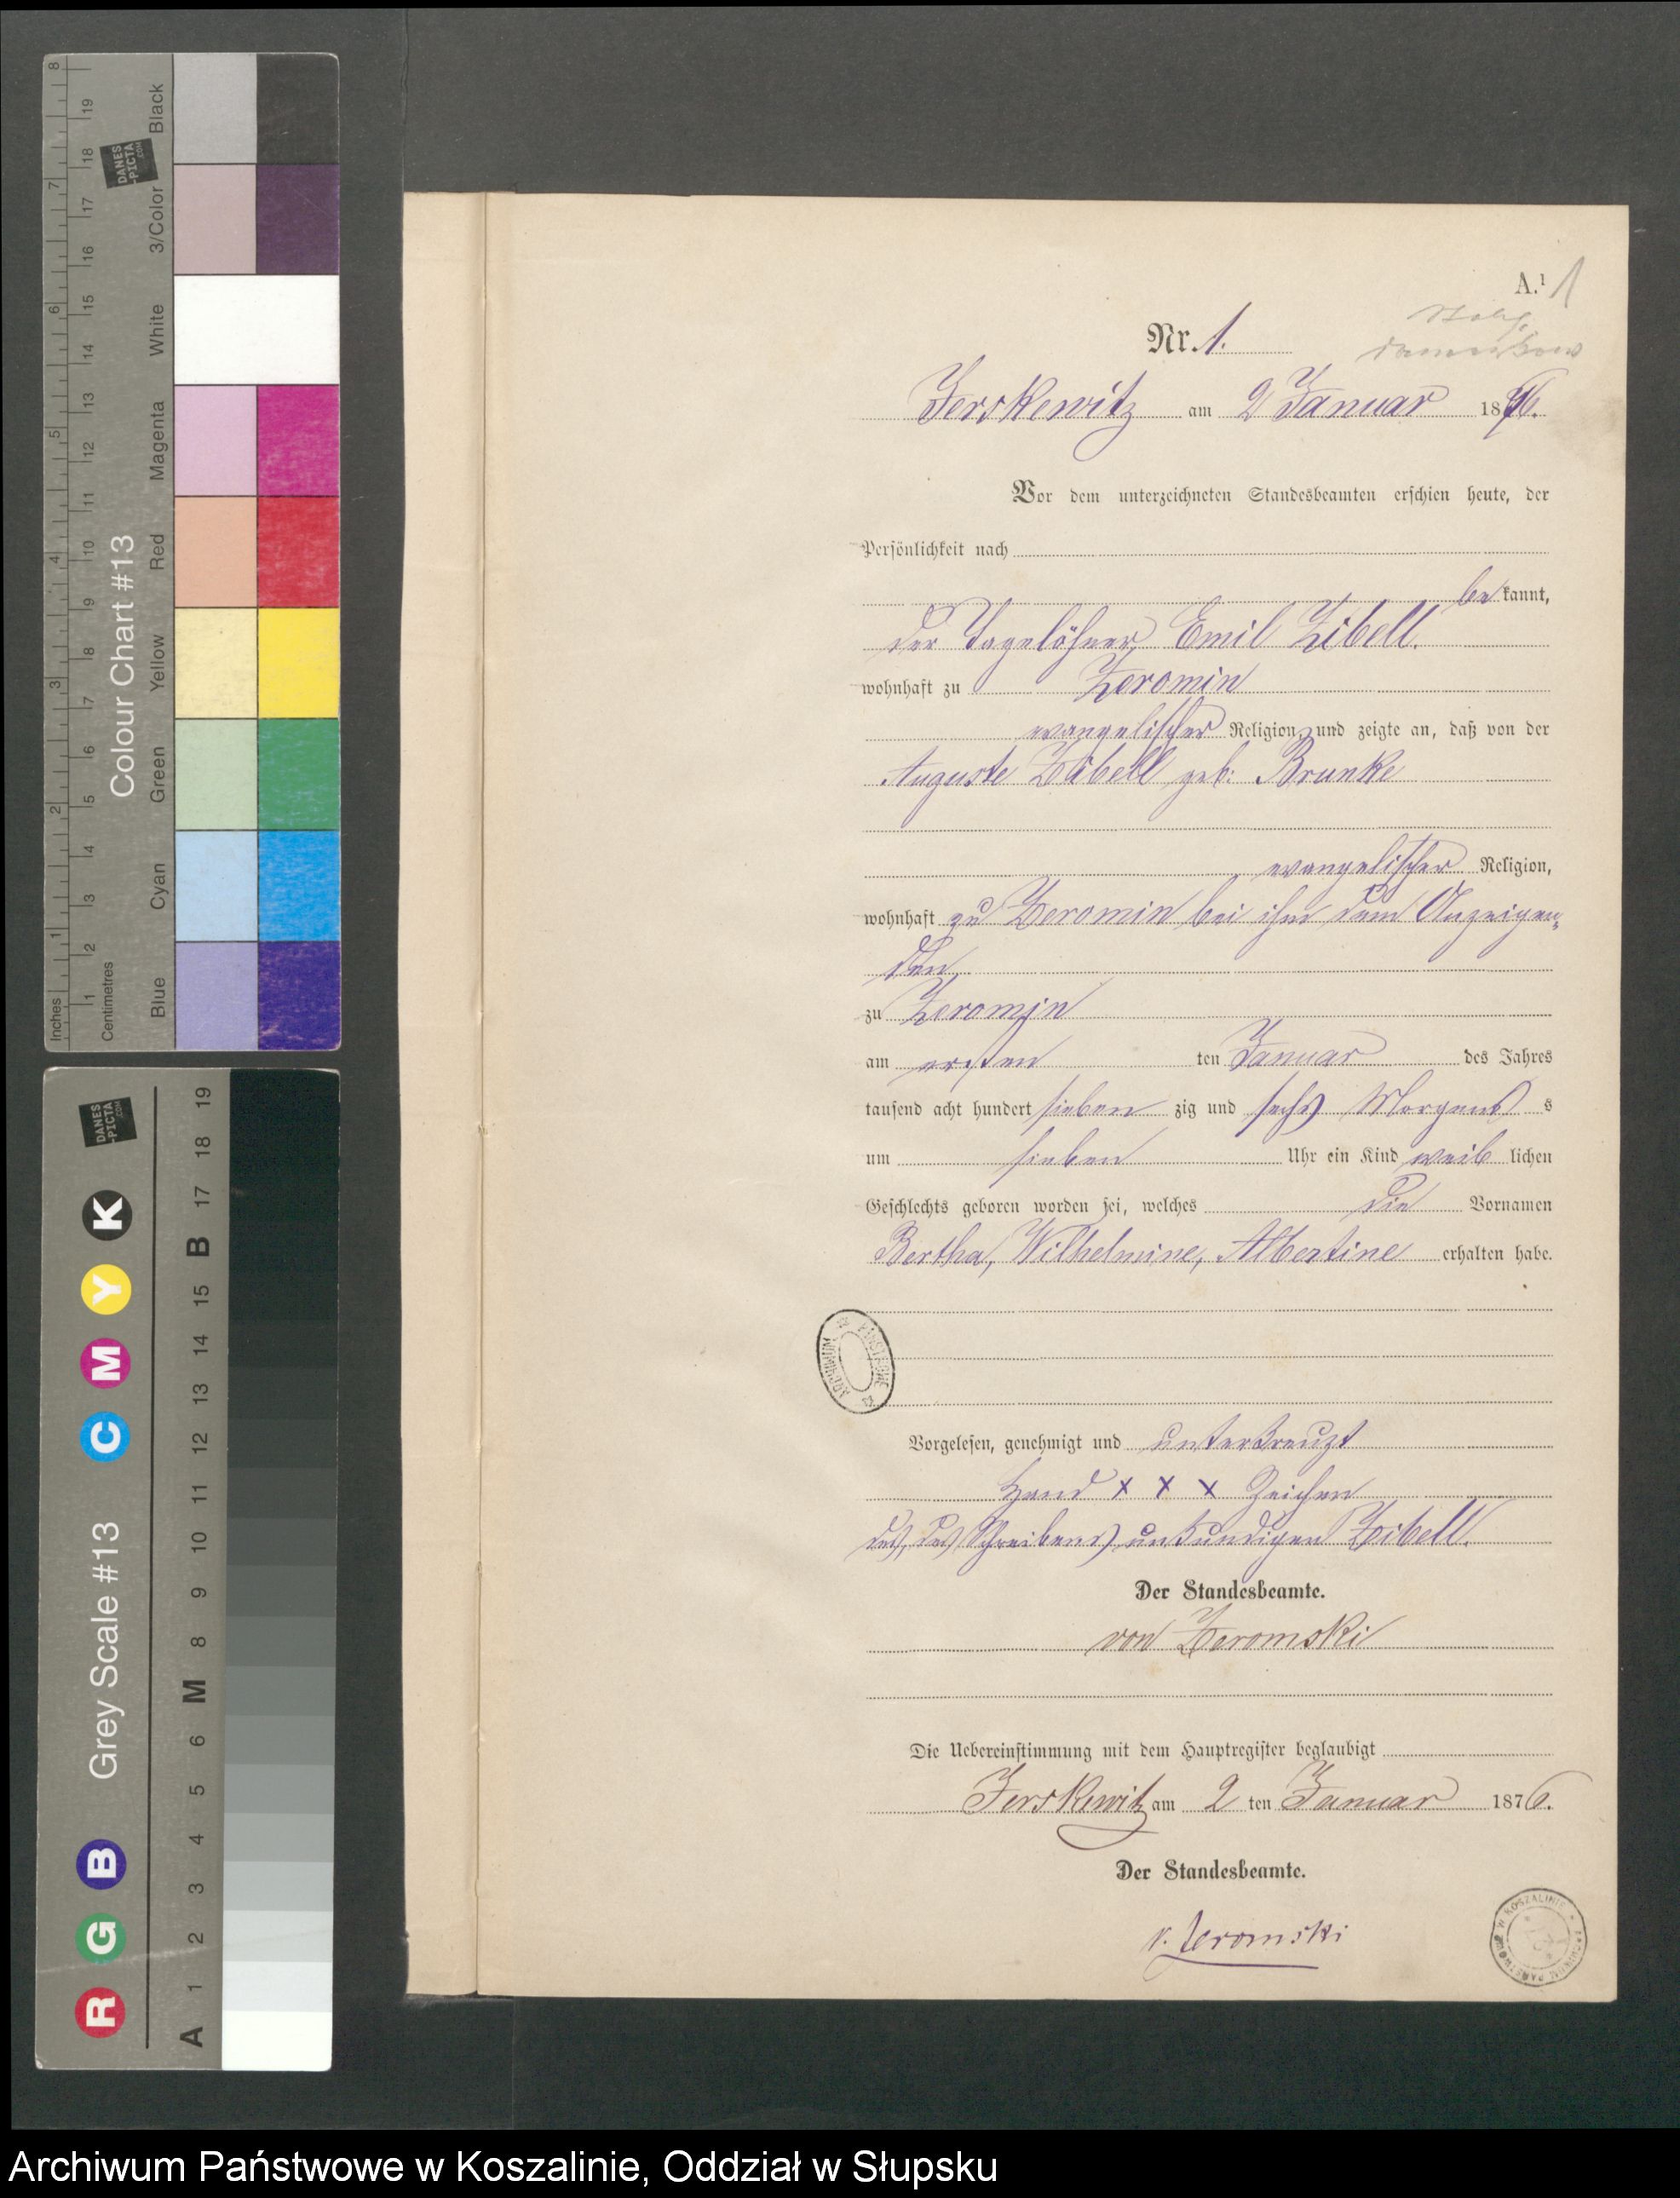 Inches 1 2 3 4 5 6 7 8
Centimetres 1 2 3 4 5 6 7 8 9 10 11 12 13 14 15 16 17 18 19
Colour Chart #13
Blue Cyan Green Yellow Red Magenta White 3/Color Black
DANES
-PICTA
.COM
Grey Scale #13
R G B C M Y K
A 1 2 3 4 5 6 M 8 9 10 11 12 13 14 15 B 17 18 19
DANES
-PICTA
.COM
A.¹ 1
Nr. 1.
Jerskewitz am 2 Januar 1876.
Vor dem unterzeichneten Standesbeamten erschien heute, der
Persönlichkeit nach
be kannt,
der Tagelöhner Emil Zibell.
wohnhaft zu Zeromin
evangelischer Religion, und zeigte an, daß von der
Auguste Zibell geb: Brunke
evangelischer Religion,
wohnhaft zu Zeromin bei ihm dem Anzeigen-
den,
zu Zeromin
am ersten ten Januar des Jahres
tausend acht hundert sieben zig und sechs Morgens s
um sieben Uhr ein Kind weib lichen
Geschlechts geboren worden sei, welches die Vornamen
Bertha, Wilhelmine, Albertine erhalten habe.
ARCHIWUM PAŃSTWOWE
Vorgelesen, genehmigt und unterkreuzt
Hand x x x Zeichen
des, des Schreibens unkundigen Zibell.
Der Standesbeamte.
von Zeromski
Die Uebereinstimmung mit dem Hauptregister beglaubigt
Jerskewitz am 2 ten Januar 1876.
Der Standesbeamte.
v. Zeromski
ARCHIWUM PAŃSTWOWE W KOSZALINIE
Archiwum Państwowe w Koszalinie, Oddział w Słupsku